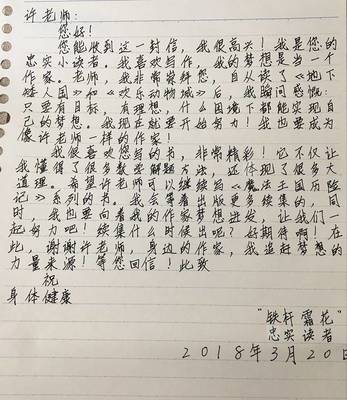 许老师:
您好!
您能收到这一封信,我很高兴!我是您的
忠实小读者。我喜欢写作,我的梦想是当一个
作家。老师,我非常崇拜您,自从读了《地下
矮人国》和《欢乐动物城》后,我瞬间感慨:
只要有目标,有理想,什么困境下都能实现自
己的梦想。我现在就要开始努力!我也要成为
像许老师一样的作家!
我很喜欢您写的书,非常精彩!它不仅让
我懂得了很多数学解题方法,还体现了很多大
道理。希望许老师可以继续写《魔法王国历险
记》系列的书。我会等着出版更多续集的,同
时,我也要向着我的作家梦想进发,让我们一
起努力吧!续集什么时候出呢?好期待啊!在
此,谢谢许老师,身边的作家,我追赶梦想的
力量来源!等您回信!此致
祝
身体健康
"铁杆霜花"
忠实读者
2018年3月20日